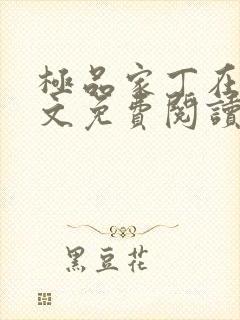 極品家丁在
文免費閱讀
黑豆花